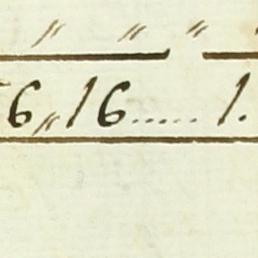 " " "
6 " 16 ..... 1.